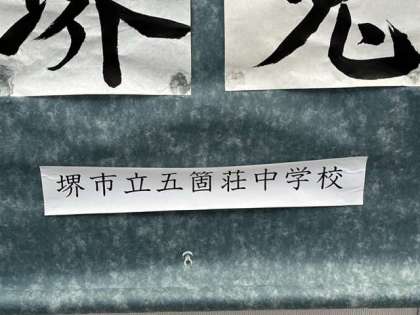 堺市立五箇荘中学校